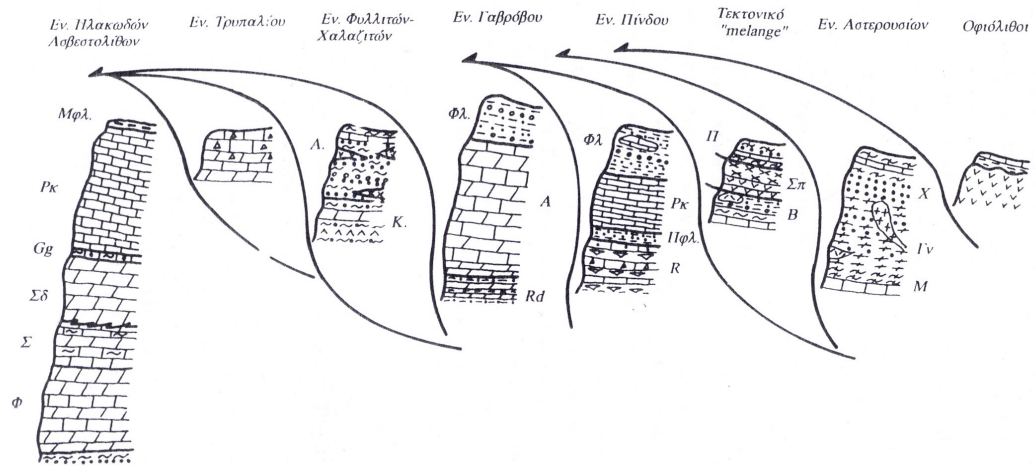 Εν. Πλακωδών Ασβεστολίθων
Εν. Τρυπαλίου
Εν. Φυλλιτών-Χαλαζιτών
Εν. Γαβρόβου
Εν. Πίνδου
Τεκτονικό "melange"
Εν. Αστερουσίων
Οφιόλιθοι
Μφλ.
Ρκ
Gg
Σδ
Σ
Φ
Α.
Κ.
Φλ.
Α
Rd
Φλ
Ρκ
Πφλ.
R
Π
Σπ
Β
Χ
Γν
Μ